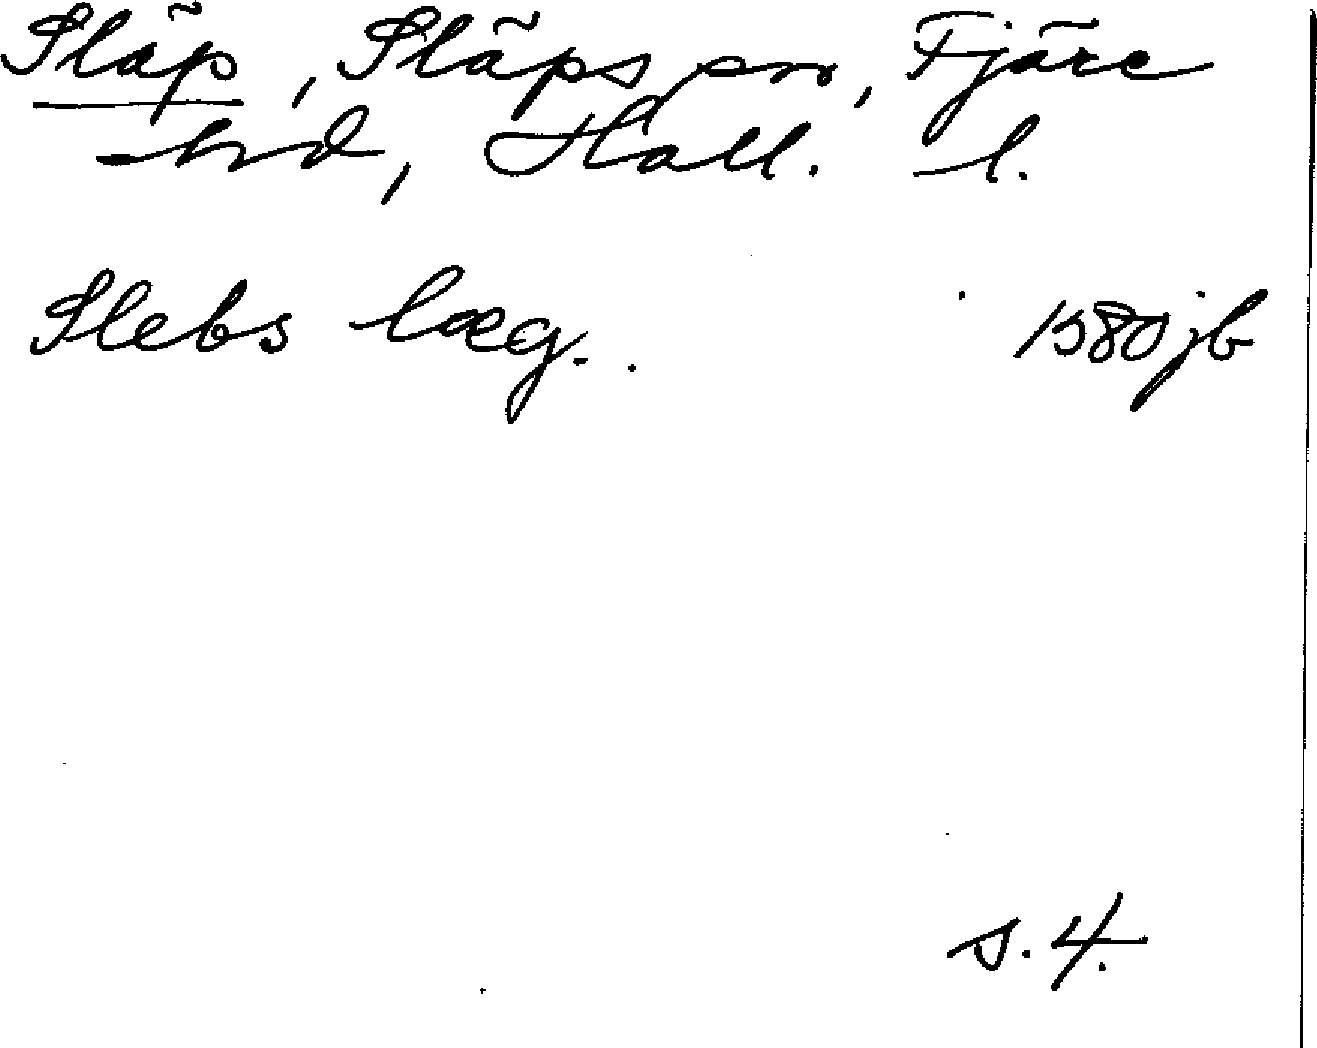 Släp, Släps sn, Fjäre
hd, Hall. l.
Slebs læg. 1580 jb
s. 4.